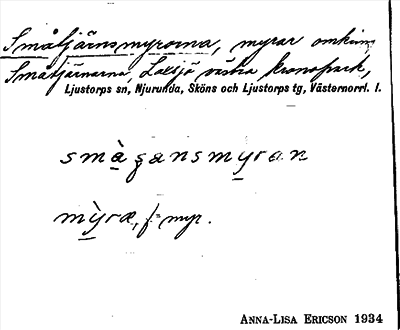 Småtjärnsmyrorna, myrar omkring
Småtjärnarna, Laxsjö västra kronopark,
Ljustorps sn, Njurunda, Sköns och Ljustorps tg, Västernorrl. l.
smàʒansmyran
mỳræ, f = myr.
ANNA-LISA ERICSON 1934